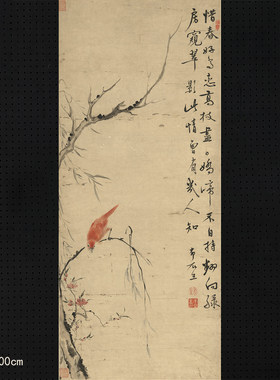 惜春好鳥恋高枝盡日嬌啼不自持飜向緑
房窺翠影此情曾有幾人知
00cm